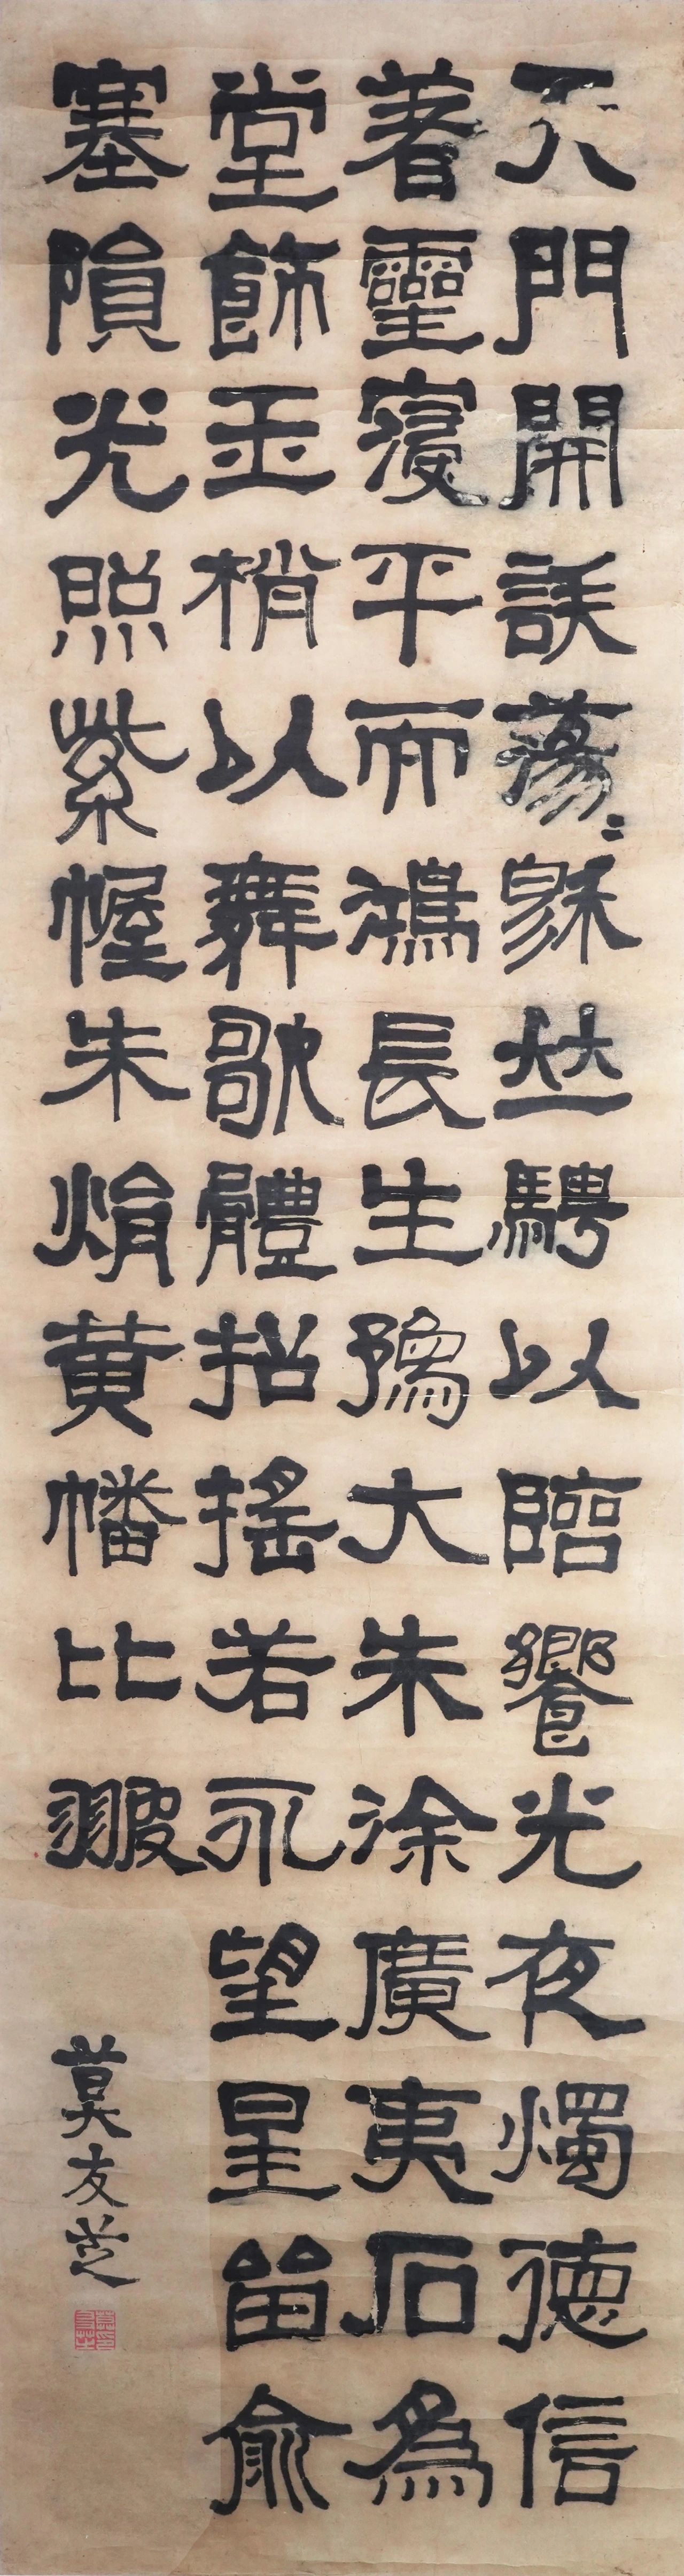 天門開詄蕩〻穆竝騁以臨饗光夜燭德信
著靈寖平而鴻長生豫大朱涂廣夷石為
堂飾玉梢以舞歌體招搖若永望星畱俞
塞隕光照紫幄朱焆黃幡比翍
莫友芝